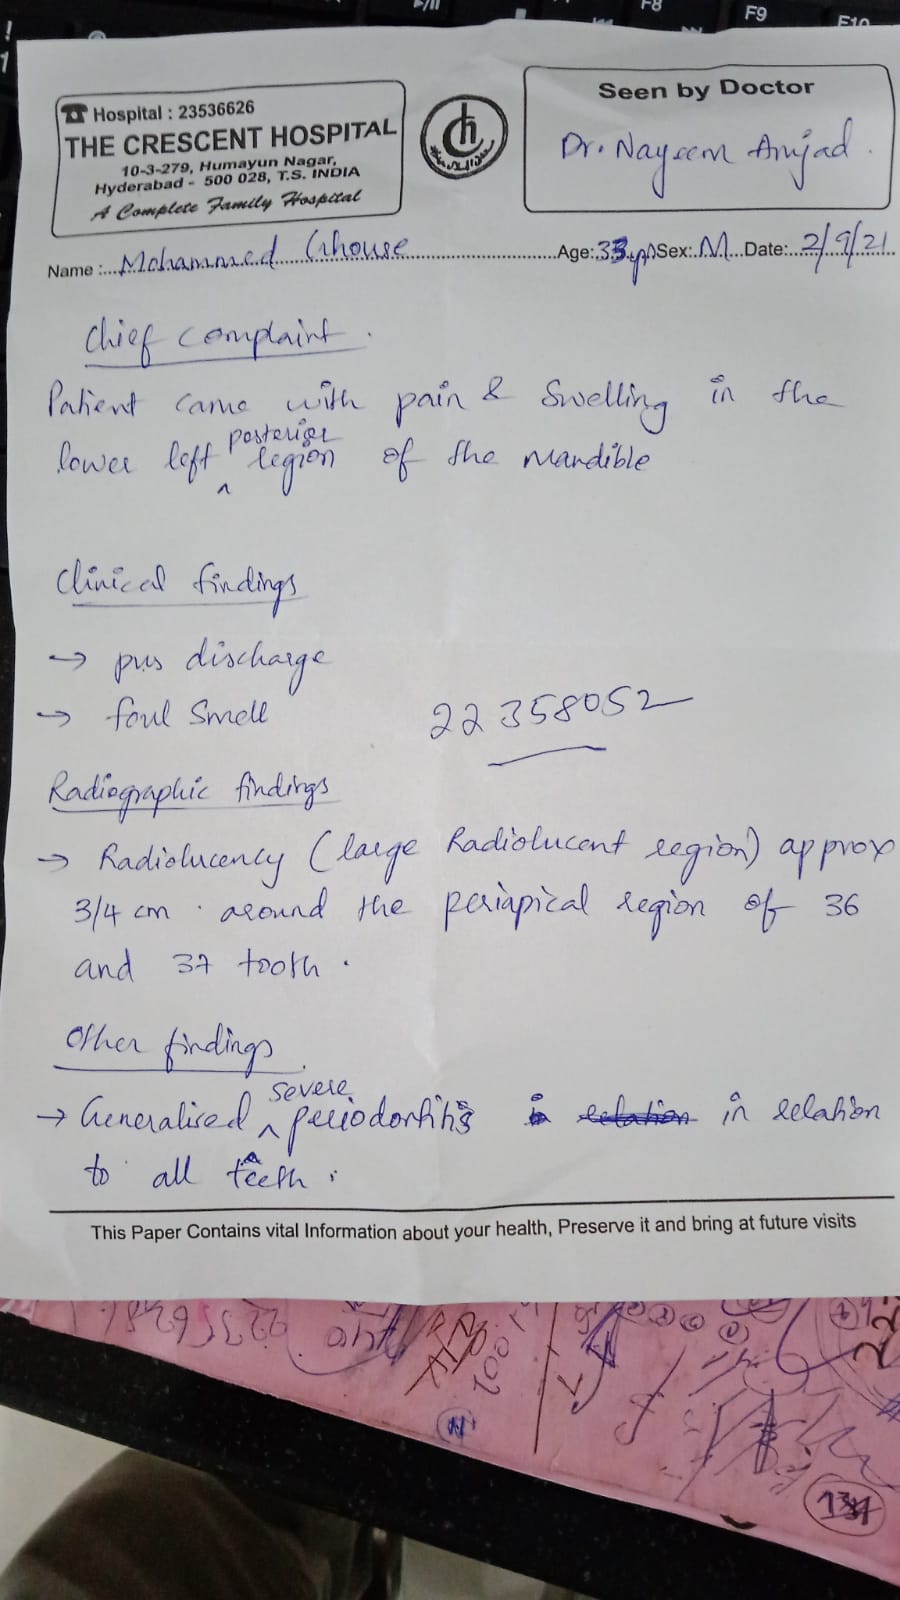 F8
F9
F10
Hospital : 23536626
THE CRESCENT HOSPITAL
10-3-279, Humayun Nagar,
Hyderabad - 500 028, T.S. INDIA
A Complete Family Hospital
Seen by Doctor
Dr. Nayeem Amjad.
Name :... Mohammed Ghouse Age: 33 yrs Sex: M Date: 2/9/21
Chief complaint.
Patient came with pain & Swelling in the
posterior
lower left ^ region of the mandible
Clinical findings
→ pus discharge
→ foul Smell
22358052
Radiographic findings
→ Radiolucency (large Radiolucent region) approx
3/4 cm . around the periapical region of 36
and 37 tooth .
Other findings
severe
→ Generalised ^ periodontitis in relation
to all teeth .
This Paper Contains vital Information about your health, Preserve it and bring at future visits